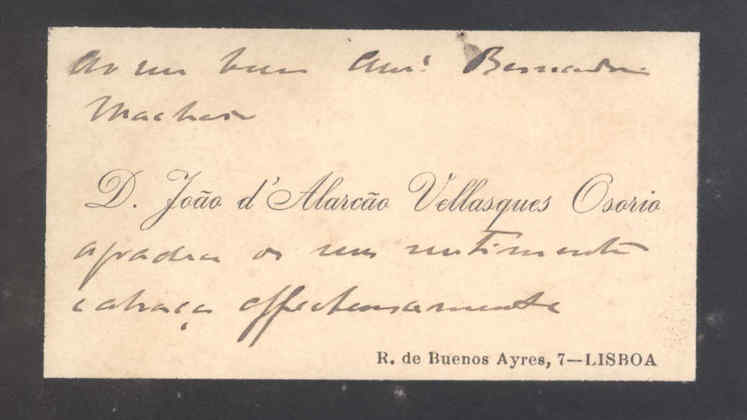 Ao seu bom Amº Bernardino
Machado
D. João d'Alarcão Vellasques Osorio
agradece os seus sentimentos
e abraça affectuosamente
R. de Buenos Ayres, 7—LISBOA